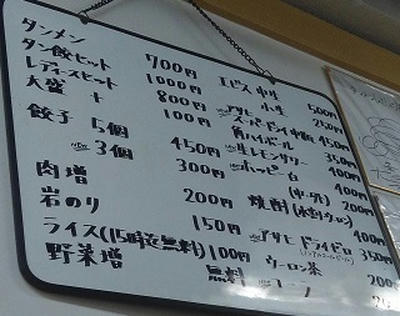 タンメン 700円
タン餃セット 1000円
レディースセット 800円
大盛 + 100円
餃子 5個 450円
3個 300円
肉増 200円
岩のり 150円
ライス(15時迄無料) 100円
野菜増 無料
エビス中生 500円
小生 250円
アサヒスーパードライ中瓶 450円
角ハイボール 350円
生レモンサワー 400円
ホッピー 400円
(中・外) 200円
焼酎 400円
アサヒドライゼロ 350円
ウーロン茶 200